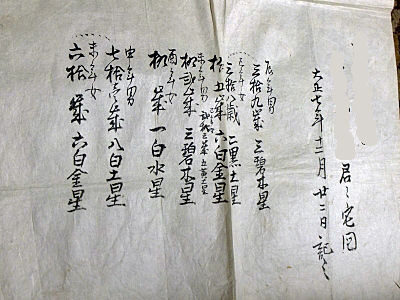 君之宅図
大正七年十二月廿二日記之
辰年男
三拾九歳 三碧木星
三拾八歳 二黒土星
拾五歳 六白金星
未年男
拾弐歳 三碧木星
五黄土星
酉年女
拾歳 一白水星
申年男
七拾壱歳 八白土星
未年女
六拾歳 六白金星